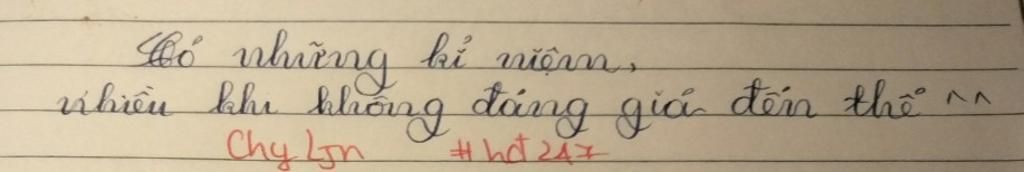 Có những kỉ niệm,
nhiều khi không đáng giá đến thế ^^
Chy Ljn #hđ247